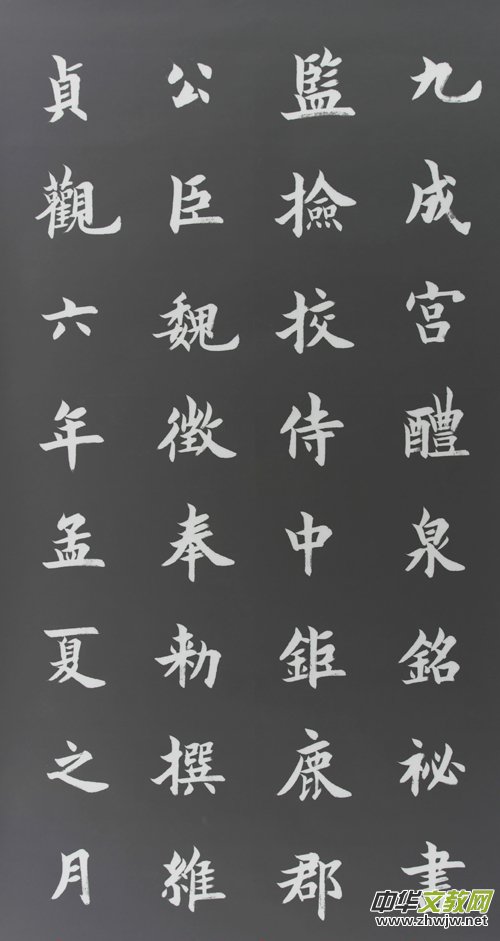 九成宮醴泉銘祕書
監撿挍侍中鉅鹿郡
公臣魏徵奉勑撰維
貞觀六年孟夏之月
中华文教网
www.zhwjw.net